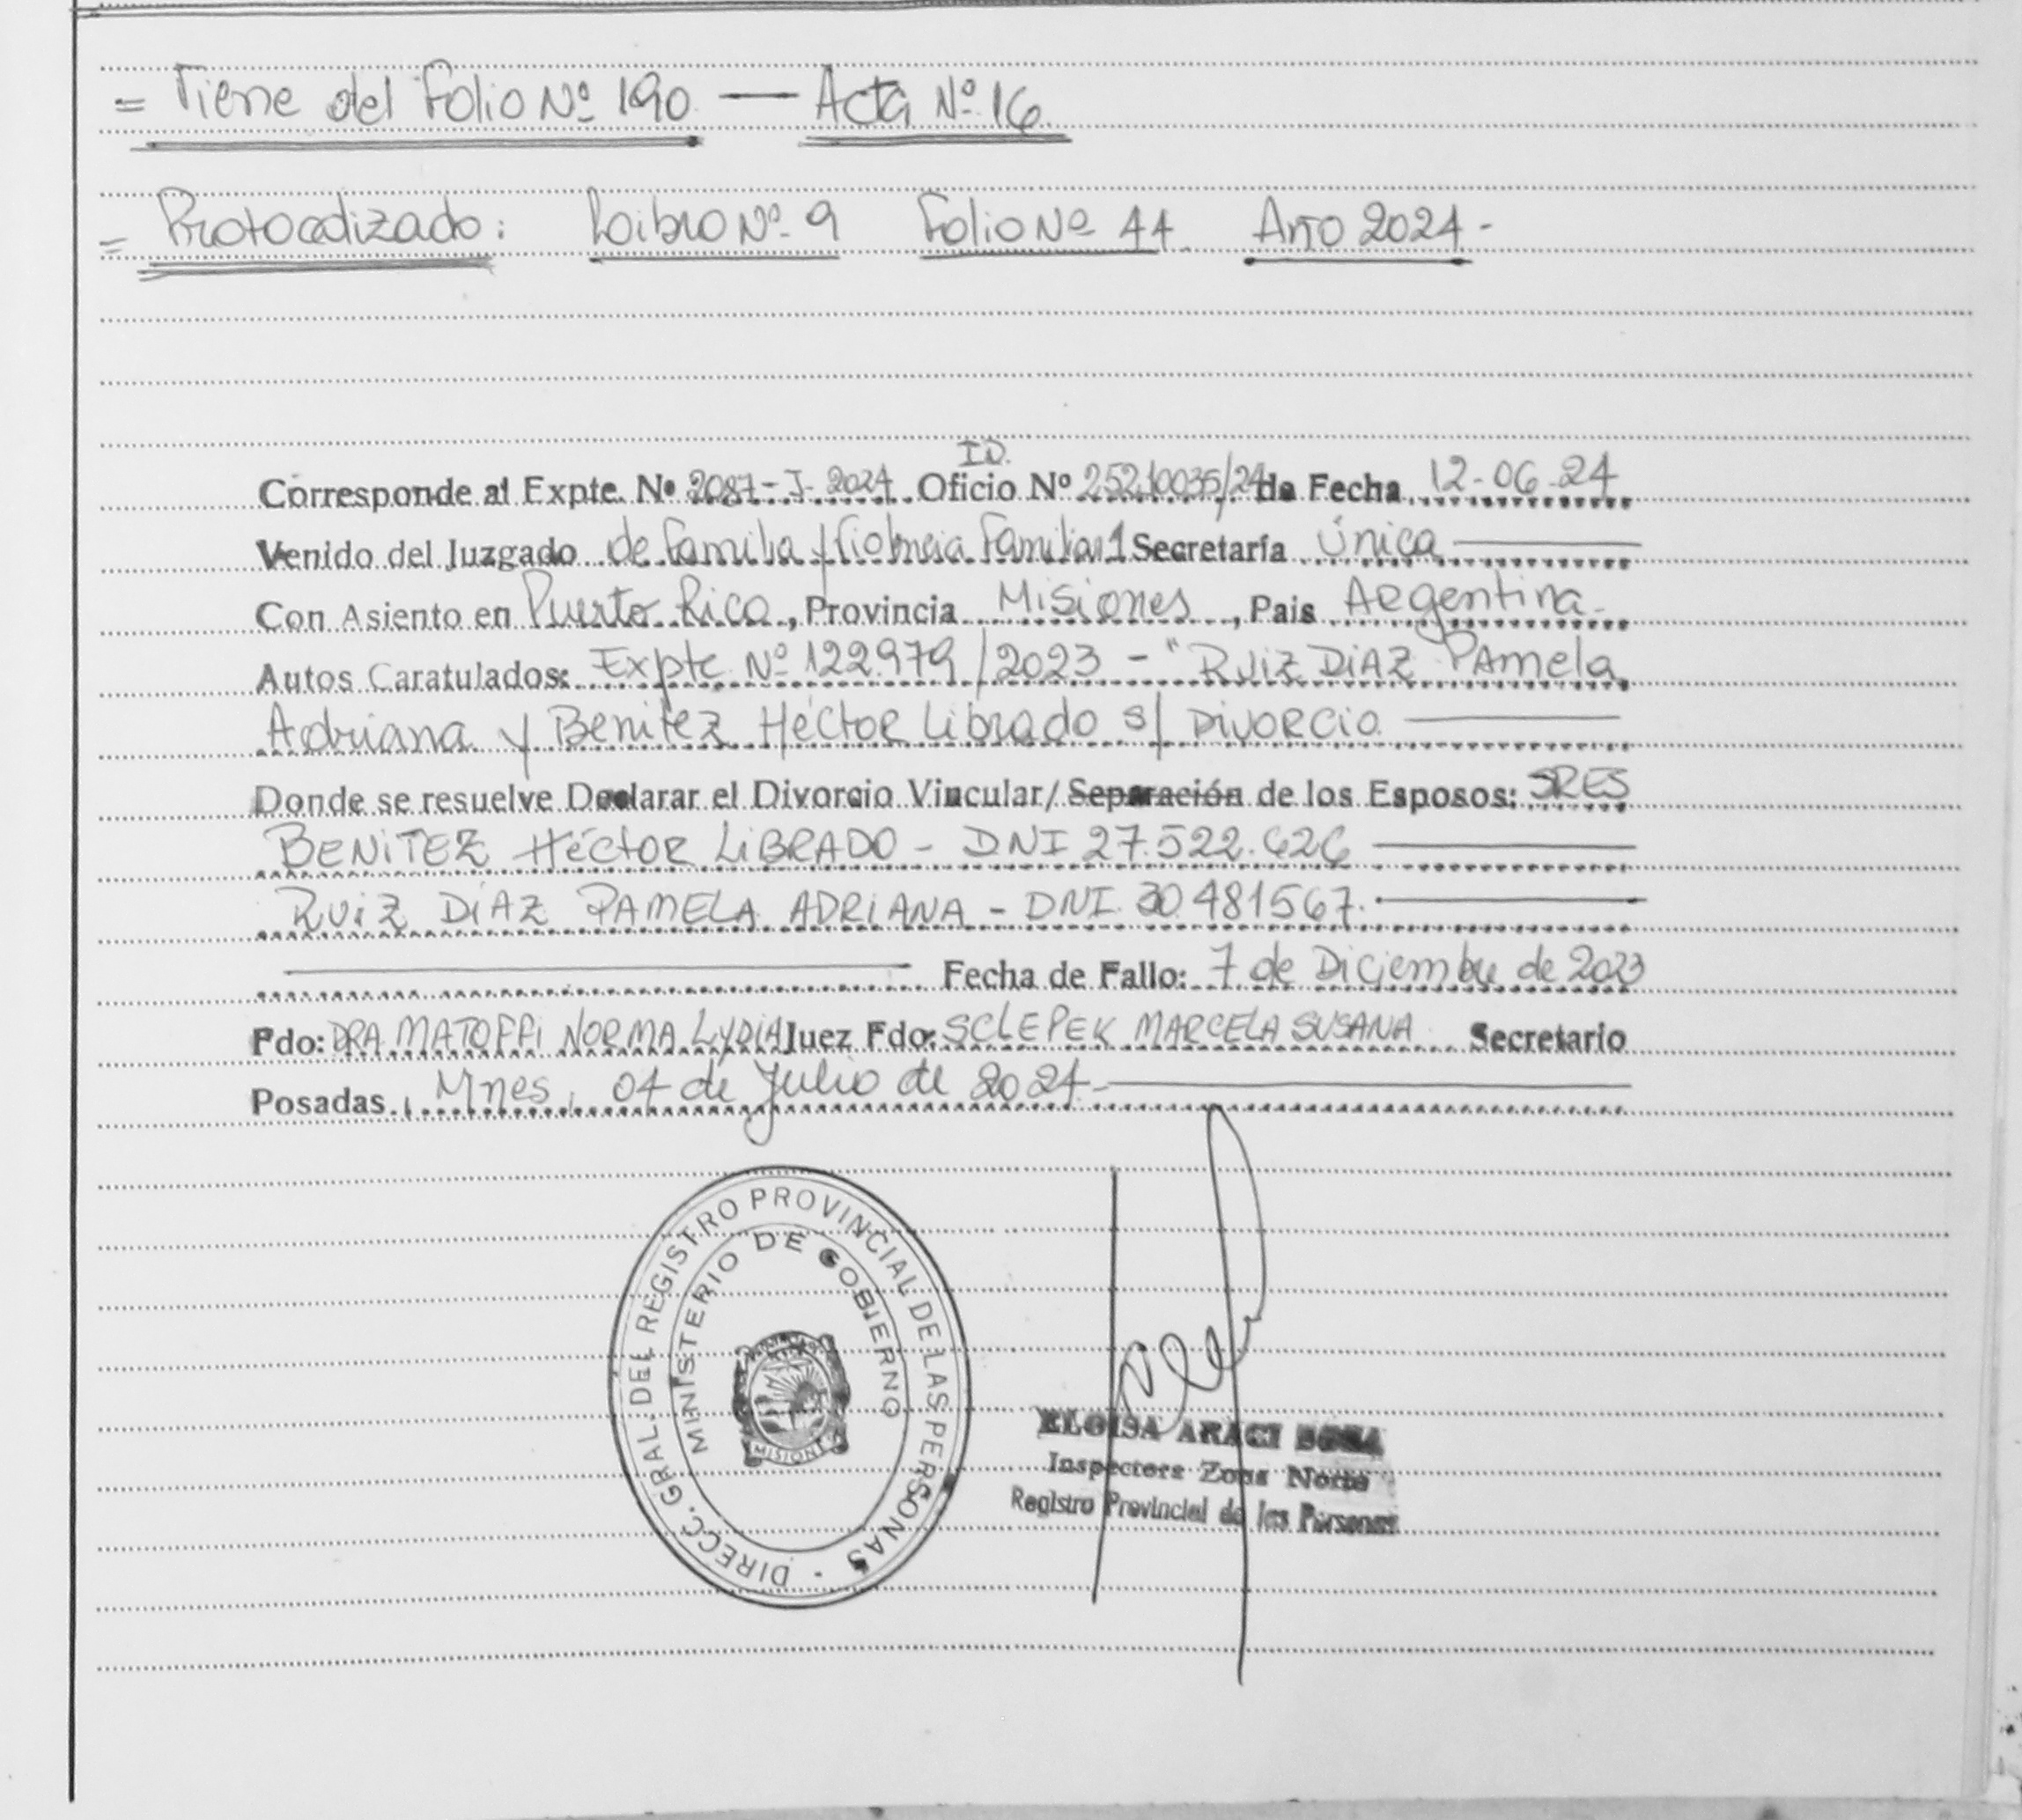 = Viene del Folio Nº 190 — Acta Nº 16
= Protocolizado: Libro Nº 9 Folio Nº 44 Año 2024 -
ID.
Corresponde al Expte. Nº 2087-J-2024 Oficio Nº 25210035/24 de Fecha 12-06-24
Venido del Juzgado de Familia y Violencia Familiar 1 Secretaría Única
Con Asiento en Puerto Rico, Provincia Misiones, Pais Argentina-
Autos Caratulados: Expte Nº 122.979/2023 - "Ruiz Diaz Pamela
Adriana y Benitez Héctor Librado s/ Divorcio
Donde se resuelve Declarar el Divorcio Vincular/Separación de los Esposos: SRES
BENITEZ HéCTOR LIBRADO - DNI 27.522.626
RUIZ DíAZ PAMELA ADRIANA - DNI. 30.481567.
Fecha de Fallo: 7 de Diciembre de 2023
Fdo: DRA MATOFFI NORMA LYDIA Juez Fdo: SCLEPEK MARCELA SUSANA Secretario
Posadas, Mnes, 04 de Julio de 2024.-
DIRECC. GRAL. DEL REGISTRO PROVINCIAL DE LAS PERSONAS
MINISTERIO DE GOBIERNO
MISIONES
ELOISA ARACI
Inspectora Zona Norte
Registro Provincial de las Personas